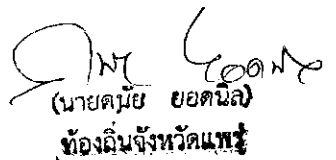 (นายคนัย ยอคนิล)
ท้องถิ่นจังหวัดแพร่